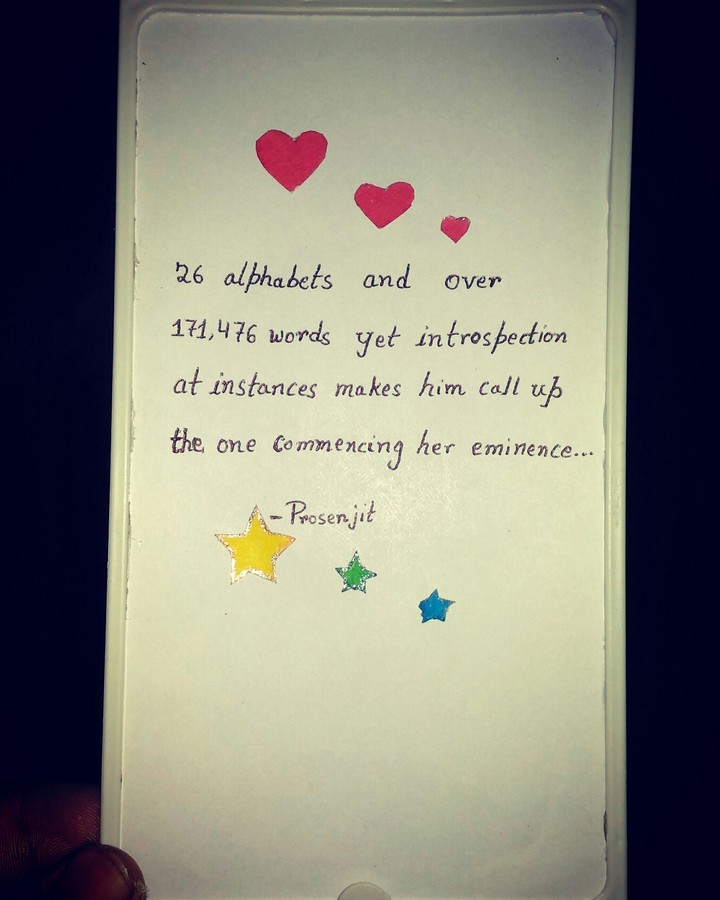 26 alphabets and over
171,476 words yet introspection
at instances makes him call up
the one commencing her eminence...
- Prosenjit